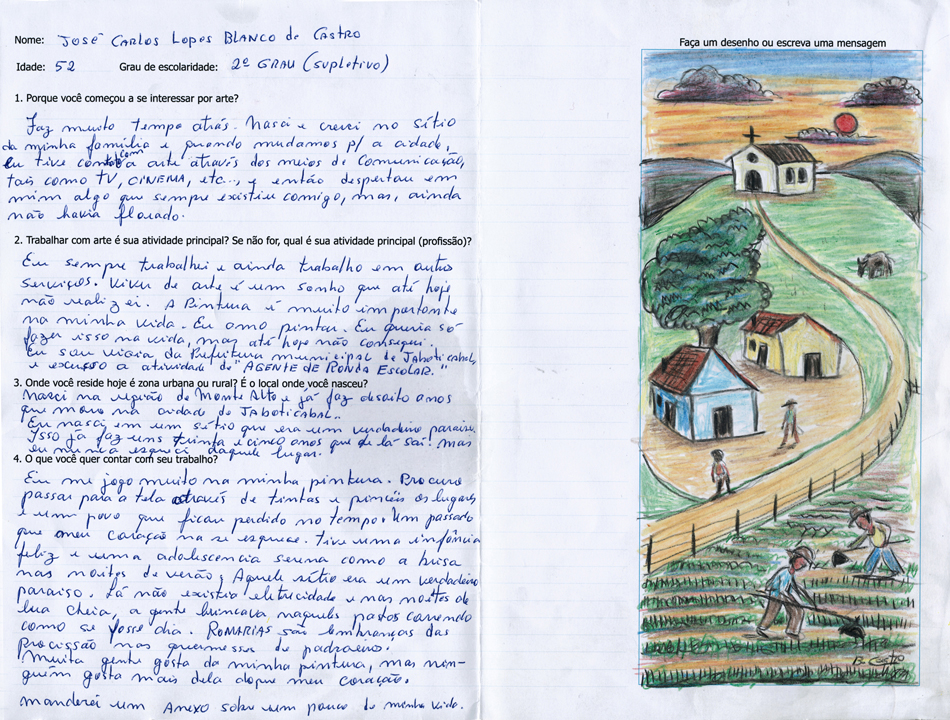 Nome: JOSÉ CARLOS LOPES BLANCO de CASTRO
Idade: 52 Grau de escolaridade: 2º GRAU (supletivo)
1. Porque você começou a se interessar por arte?
Faz muito tempo atrás. Nasci e cresci no sítio
da minha família e quando mudamos p/ a cidade,
eu tive contato com a arte através dos meios de Comunicação,
tais como TV, CINEMA, etc..., e então despertou em
mim algo que sempre existiu comigo, mas, ainda
não havia florado.
2. Trabalhar com arte é sua atividade principal? Se não for, qual é sua atividade principal (profissão)?
Eu sempre trabalhei e ainda trabalho em outro
serviços. Viver de arte é um sonho que até hoje
não realizei. A Pintura é muito importante
na minha vida. Eu amo pintar. Eu queria só
fazer isso na vida, mas até hoje não consegui.
Eu sou vigia da Prefeitura municipal de Jaboticabal,
e exerço a atividade de "AGENTE DE RONDA ESCOLAR."
3. Onde você reside hoje é zona urbana ou rural? É o local onde você nasceu?
Nasci na região de Monte Alto e já faz desoito anos
que moro na cidade de Jaboticabal.
Eu nasci em um sítio que era um verdadeiro paraiso.
Isso já faz uns trinta e cinco anos que de lá sai! mas
eu nunca esqueci daquele lugar.
4. O que você quer contar com seu trabalho?
Eu me jogo muito na minha pintura. Procuro
passar para a tela através de tintas e pincéis os lugares
e um povo que ficou perdido no tempo. Um passado
que meu coração não se esquece. Tive uma infância
feliz e uma adolescencia serena como a brisa
nas noites de verão; Aquele sítio era um verdadeiro
paraiso. Lá não existia eletricidade e nas noites de
lua cheia, a gente brincava naqueles pastos correndo
como se fosse dia. ROMARIAS são lembranças das
procissão nas quermesses do padroeiro.
Muita gente gosta da minha pintura, mas nin-
guém gosta mais dela doque meu coração.
mandarei um Anexo sobre um pouco de minha vida.
Faça um desenho ou escreva uma mensagem
B. Castro